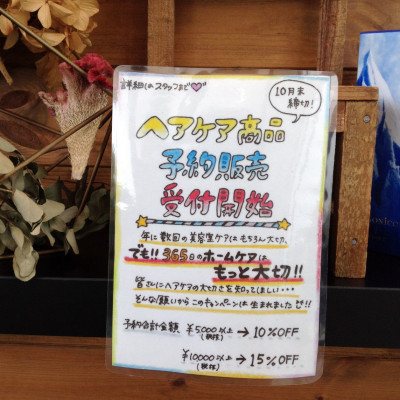 詳細はスタッフまで
10月末
締切!
ヘアケア商品
予約販売
受付開始
年に数回の美容室ケアはもちろん大切、
でも!!365日のホームケアは
もっと大切!!
皆さんにヘアケアの大切さを知ってほしい・・・
そんな願いからこのキャンペーンは生まれました!!
予約合計金額 ¥5,000以上→10%OFF
(税抜)
¥10000以上→15%OFF
(税抜)